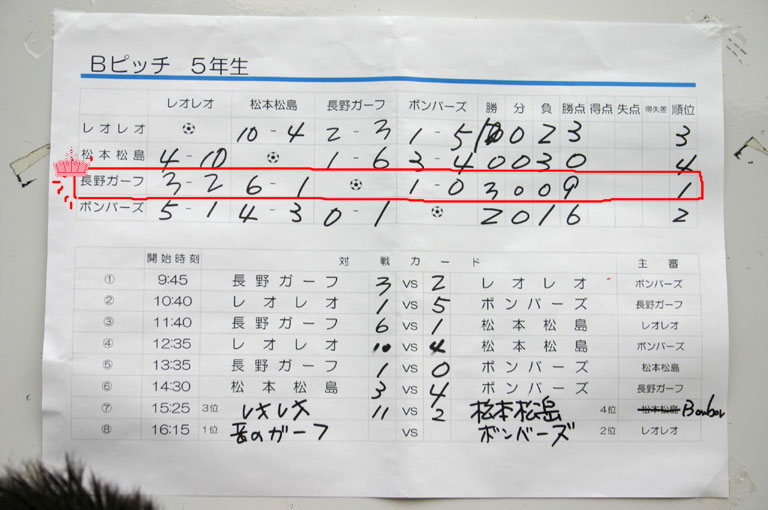 Bピッチ 5年生
レオレオ 松本松島 長野ガーフ ボンバーズ 勝 分 負 勝点 得点 失点 得失差 順位
レオレオ 10 - 4 2 - 3 1 - 5 1 0 2 3 3
松本松島 4 - 10 1 - 6 3 - 4 0 0 3 0 4
長野ガーフ 3 - 2 6 - 1 1 - 0 3 0 0 9 1
ボンバーズ 5 - 1 4 - 3 0 - 1 2 0 1 6 2
開始時刻 対戦カード 主審
① 9:45 長野ガーフ 3 vs 2 レオレオ ボンバーズ
② 10:40 レオレオ 1 vs 5 ボンバーズ 長野ガーフ
③ 11:40 長野ガーフ 6 vs 1 松本松島 レオレオ
④ 12:35 レオレオ 10 vs 4 松本松島 ボンバーズ
⑤ 13:35 長野ガーフ 1 vs 0 ボンバーズ 松本松島
⑥ 14:30 松本松島 3 vs 4 ボンバーズ 長野ガーフ
⑦ 15:25 3位 レオレオ 11 vs 2 松本松島 4位 松本松島 Bonbon
⑧ 16:15 1位 長のガーフ vs ボンバーズ 2位 レオレオ